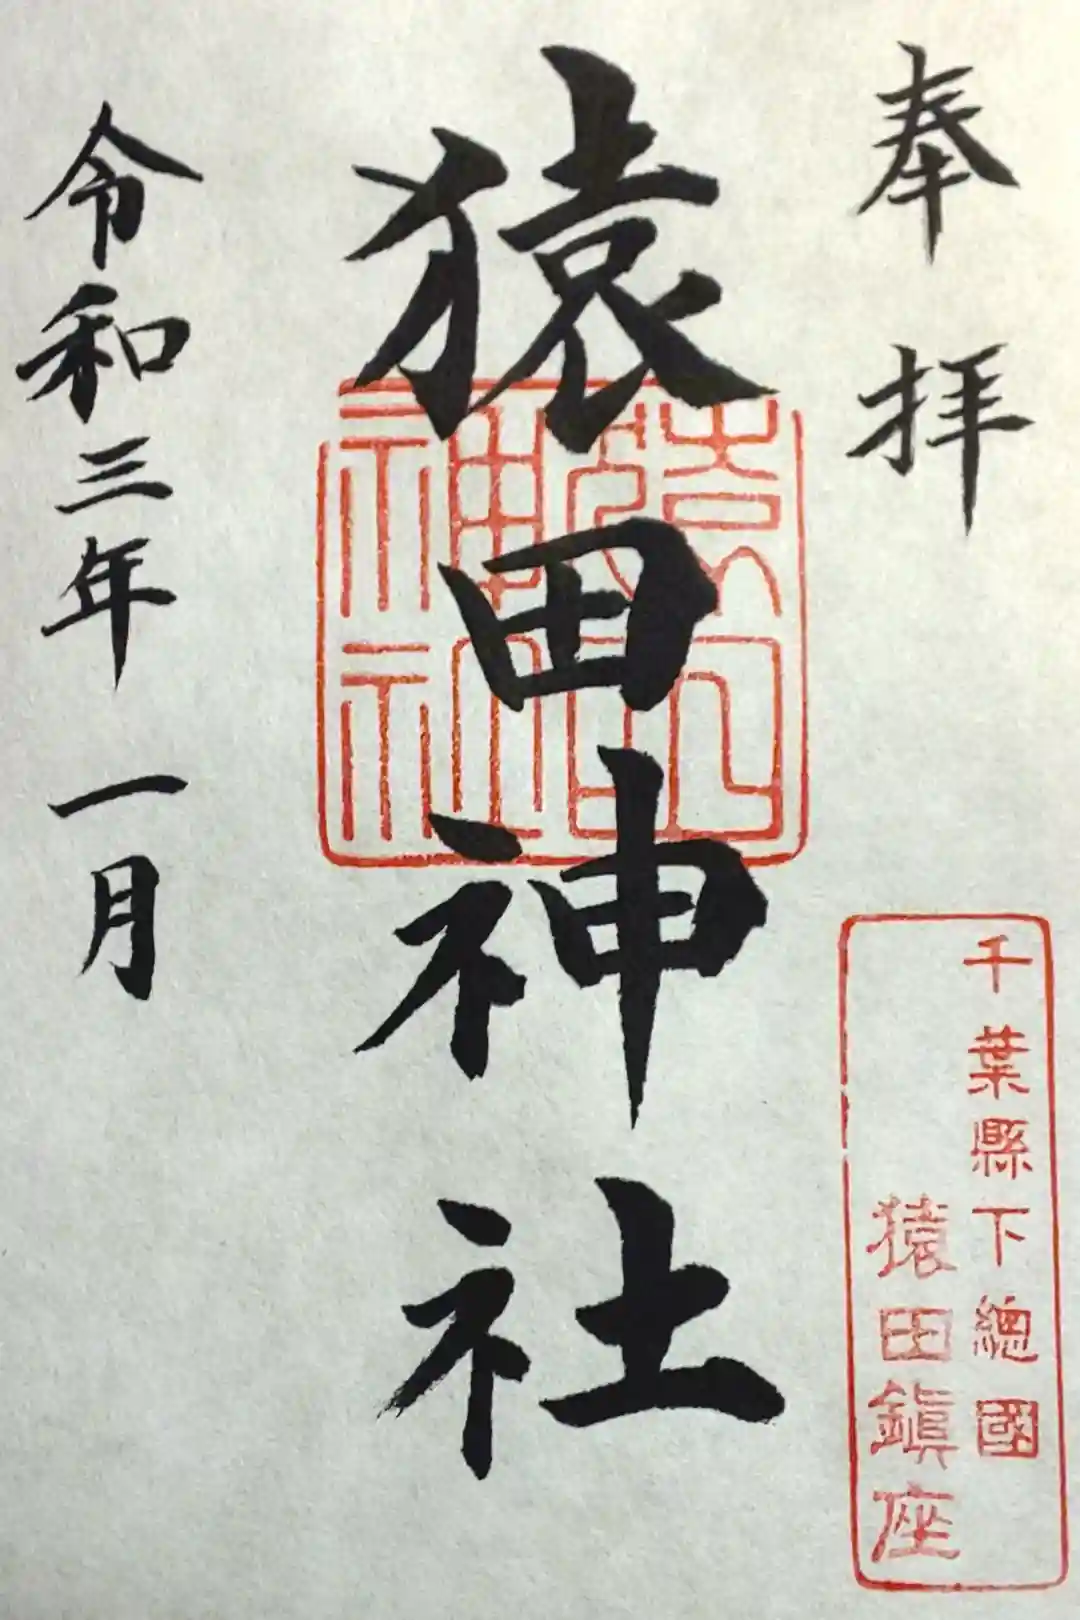 奉拝
千葉縣下總國
猿田鎭座
猿田神社
令和三年一月